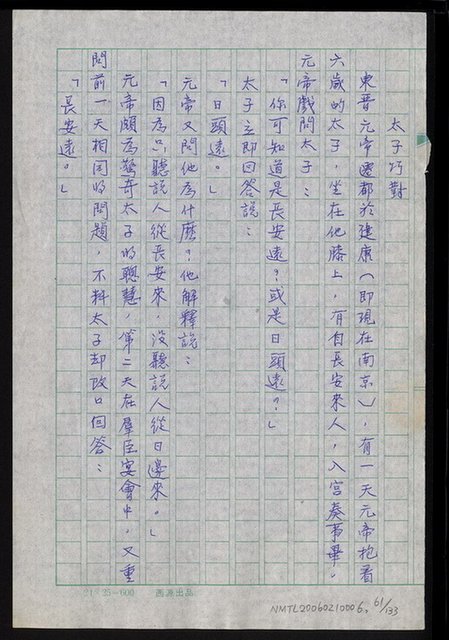 太子巧對
東晉元帝遷都於建康(即現在南京),有一天元帝抱着
六歲的太子,坐在他膝上,有自長安來人,入宮奏事畢,
元帝戲問太子:
「你可知道是長安遠?或是日頭遠?」
太子立即回答說:
「日頭遠。」
元帝又問他為什麼?他解釋說:
「因為只聽說人從長安來,沒聽說人從日邊來。」
元帝頗為驚奇太子的聰慧,第二天在羣臣宴會中,又重
問前一天相同的問題,不料太子却改口回答:
「長安遠。」
24×25=600 西源出品
NMTL20060210006, 61/133